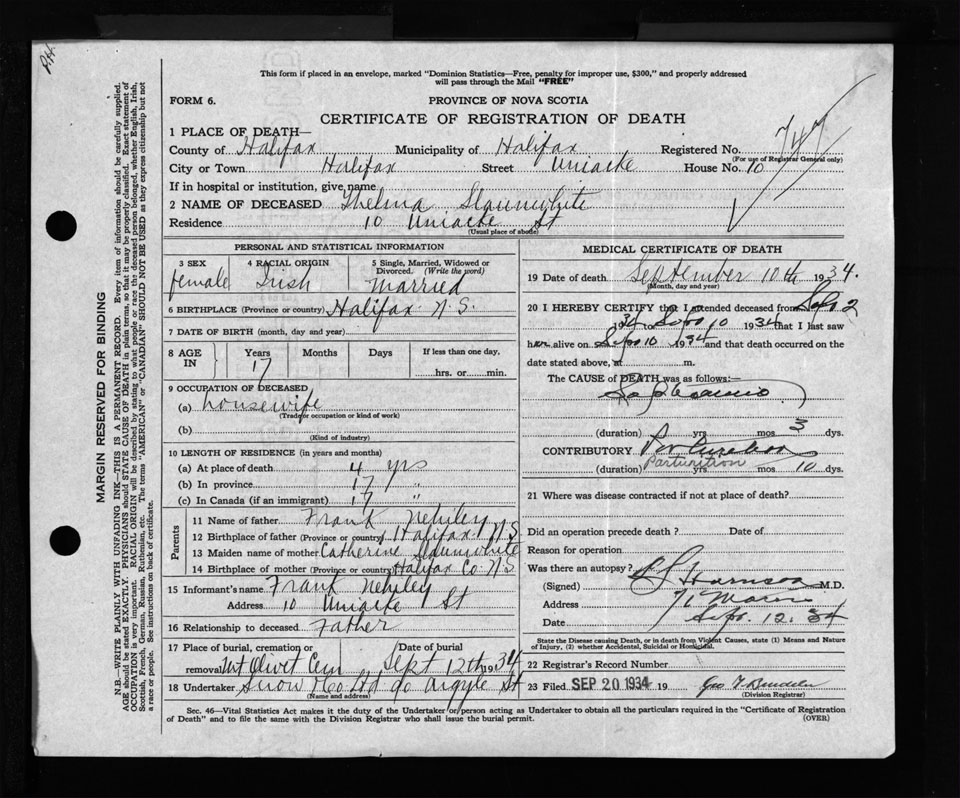 P.H.
This form if placed in an envelope, marked "Dominion Statistics—Free, penalty for improper use, $300," and properly addressed
will pass through the Mail "FREE"
FORM 6.
PROVINCE OF NOVA SCOTIA
CERTIFICATE OF REGISTRATION OF DEATH
1 PLACE OF DEATH—
County of Halifax Municipality of Halifax Registered No. 747
(For use of Registrar General only)
City or Town Halifax Street Uniacke House No. 10
If in hospital or institution, give name
2 NAME OF DECEASED Thelma Slaunwhite
Residence 10 Uniacke St
(Usual place of abode)
PERSONAL AND STATISTICAL INFORMATION
3 SEX 4 RACIAL ORIGIN 5 Single, Married, Widowed or
Divorced. (Write the word)
female Irish Married
6 BIRTHPLACE (Province or country) Halifax N.S.
7 DATE OF BIRTH (month, day and year)
8 AGE IN Years Months Days If less than one day,
17 hrs. or min.
9 OCCUPATION OF DECEASED
(a) housewife
(Trade or occupation or kind of work)
(b)
(Kind of industry)
10 LENGTH OF RESIDENCE (in years and months)
(a) At place of death 4 yrs
(b) In province 17 "
(c) In Canada (if an immigrant) 17 "
Parents
11 Name of father Frank Nehiley
12 Birthplace of father (Province or country) Halifax N.S
13 Maiden name of mother Catherine Slaunwhite
14 Birthplace of mother (Province or country) Halifax Co. N.S
15 Informant's name Frank Nehiley
Address 10 Uniacke St
16 Relationship to deceased Father
17 Place of burial, cremation or Date of burial
removal Mt Olivet Cem Sept 12th 1934
18 Undertaker Snow & Co Ltd Argyle St
(Name and address)
MEDICAL CERTIFICATE OF DEATH
19 Date of death September 10th 1934.
(Month, day and year)
20 I HEREBY CERTIFY that I attended deceased from Sept 2
1934 to Sept 10 1934 that I last saw
her alive on Sept 10 1934 and that death occurred on the
date stated above, at m.
The CAUSE of DEATH was as follows:
(duration) yrs mos 3 dys.
CONTRIBUTORY Parturition
Parturition
(duration) yrs mos 10 dys.
21 Where was disease contracted if not at place of death?
Did an operation precede death ? Date of
Reason for operation
Was there an autopsy?
(Signed) M.D.
Address 71 Morris
Date Sept. 12. 34
State the Disease causing Death, or in death from Violent Causes, state (1) Means and Nature
of Injury, (2) whether Accidental, Suicidal or Homicidal.
22 Registrar's Record Number
23 Filed SEP 20 1934 19 Geo
(Division Registrar)
Sec. 46—Vital Statistics Act makes it the duty of the Undertaker or person acting as Undertaker to obtain all the particulars required in the "Certificate of Registration
of Death" and to file the same with the Division Registrar who shall issue the burial permit. (OVER)
MARGIN RESERVED FOR BINDING
N.B.—WRITE PLAINLY WITH UNFADING INK—THIS IS A PERMANENT RECORD. Every item of information should be carefully supplied.
AGE should be stated EXACTLY. PHYSICIANS should STATE CAUSE OF DEATH in plain terms, so that it may be properly classified. Exact statement of
OCCUPATION is very important. RACIAL ORIGIN will be described by stating to what people or race the deceased person belonged, whether English, Irish,
Scottish, French, German, Russian, Ruthenian, etc. The terms "AMERICAN" or "CANADIAN" SHOULD NOT BE USED as they express citizenship but not
a race or people. See instructions on back of certificate.